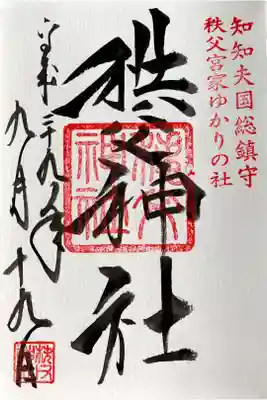 知知夫国総鎮守
秩父宮家ゆかりの社
秩父神社
平成二十九年
九月十九日
秩父
神社